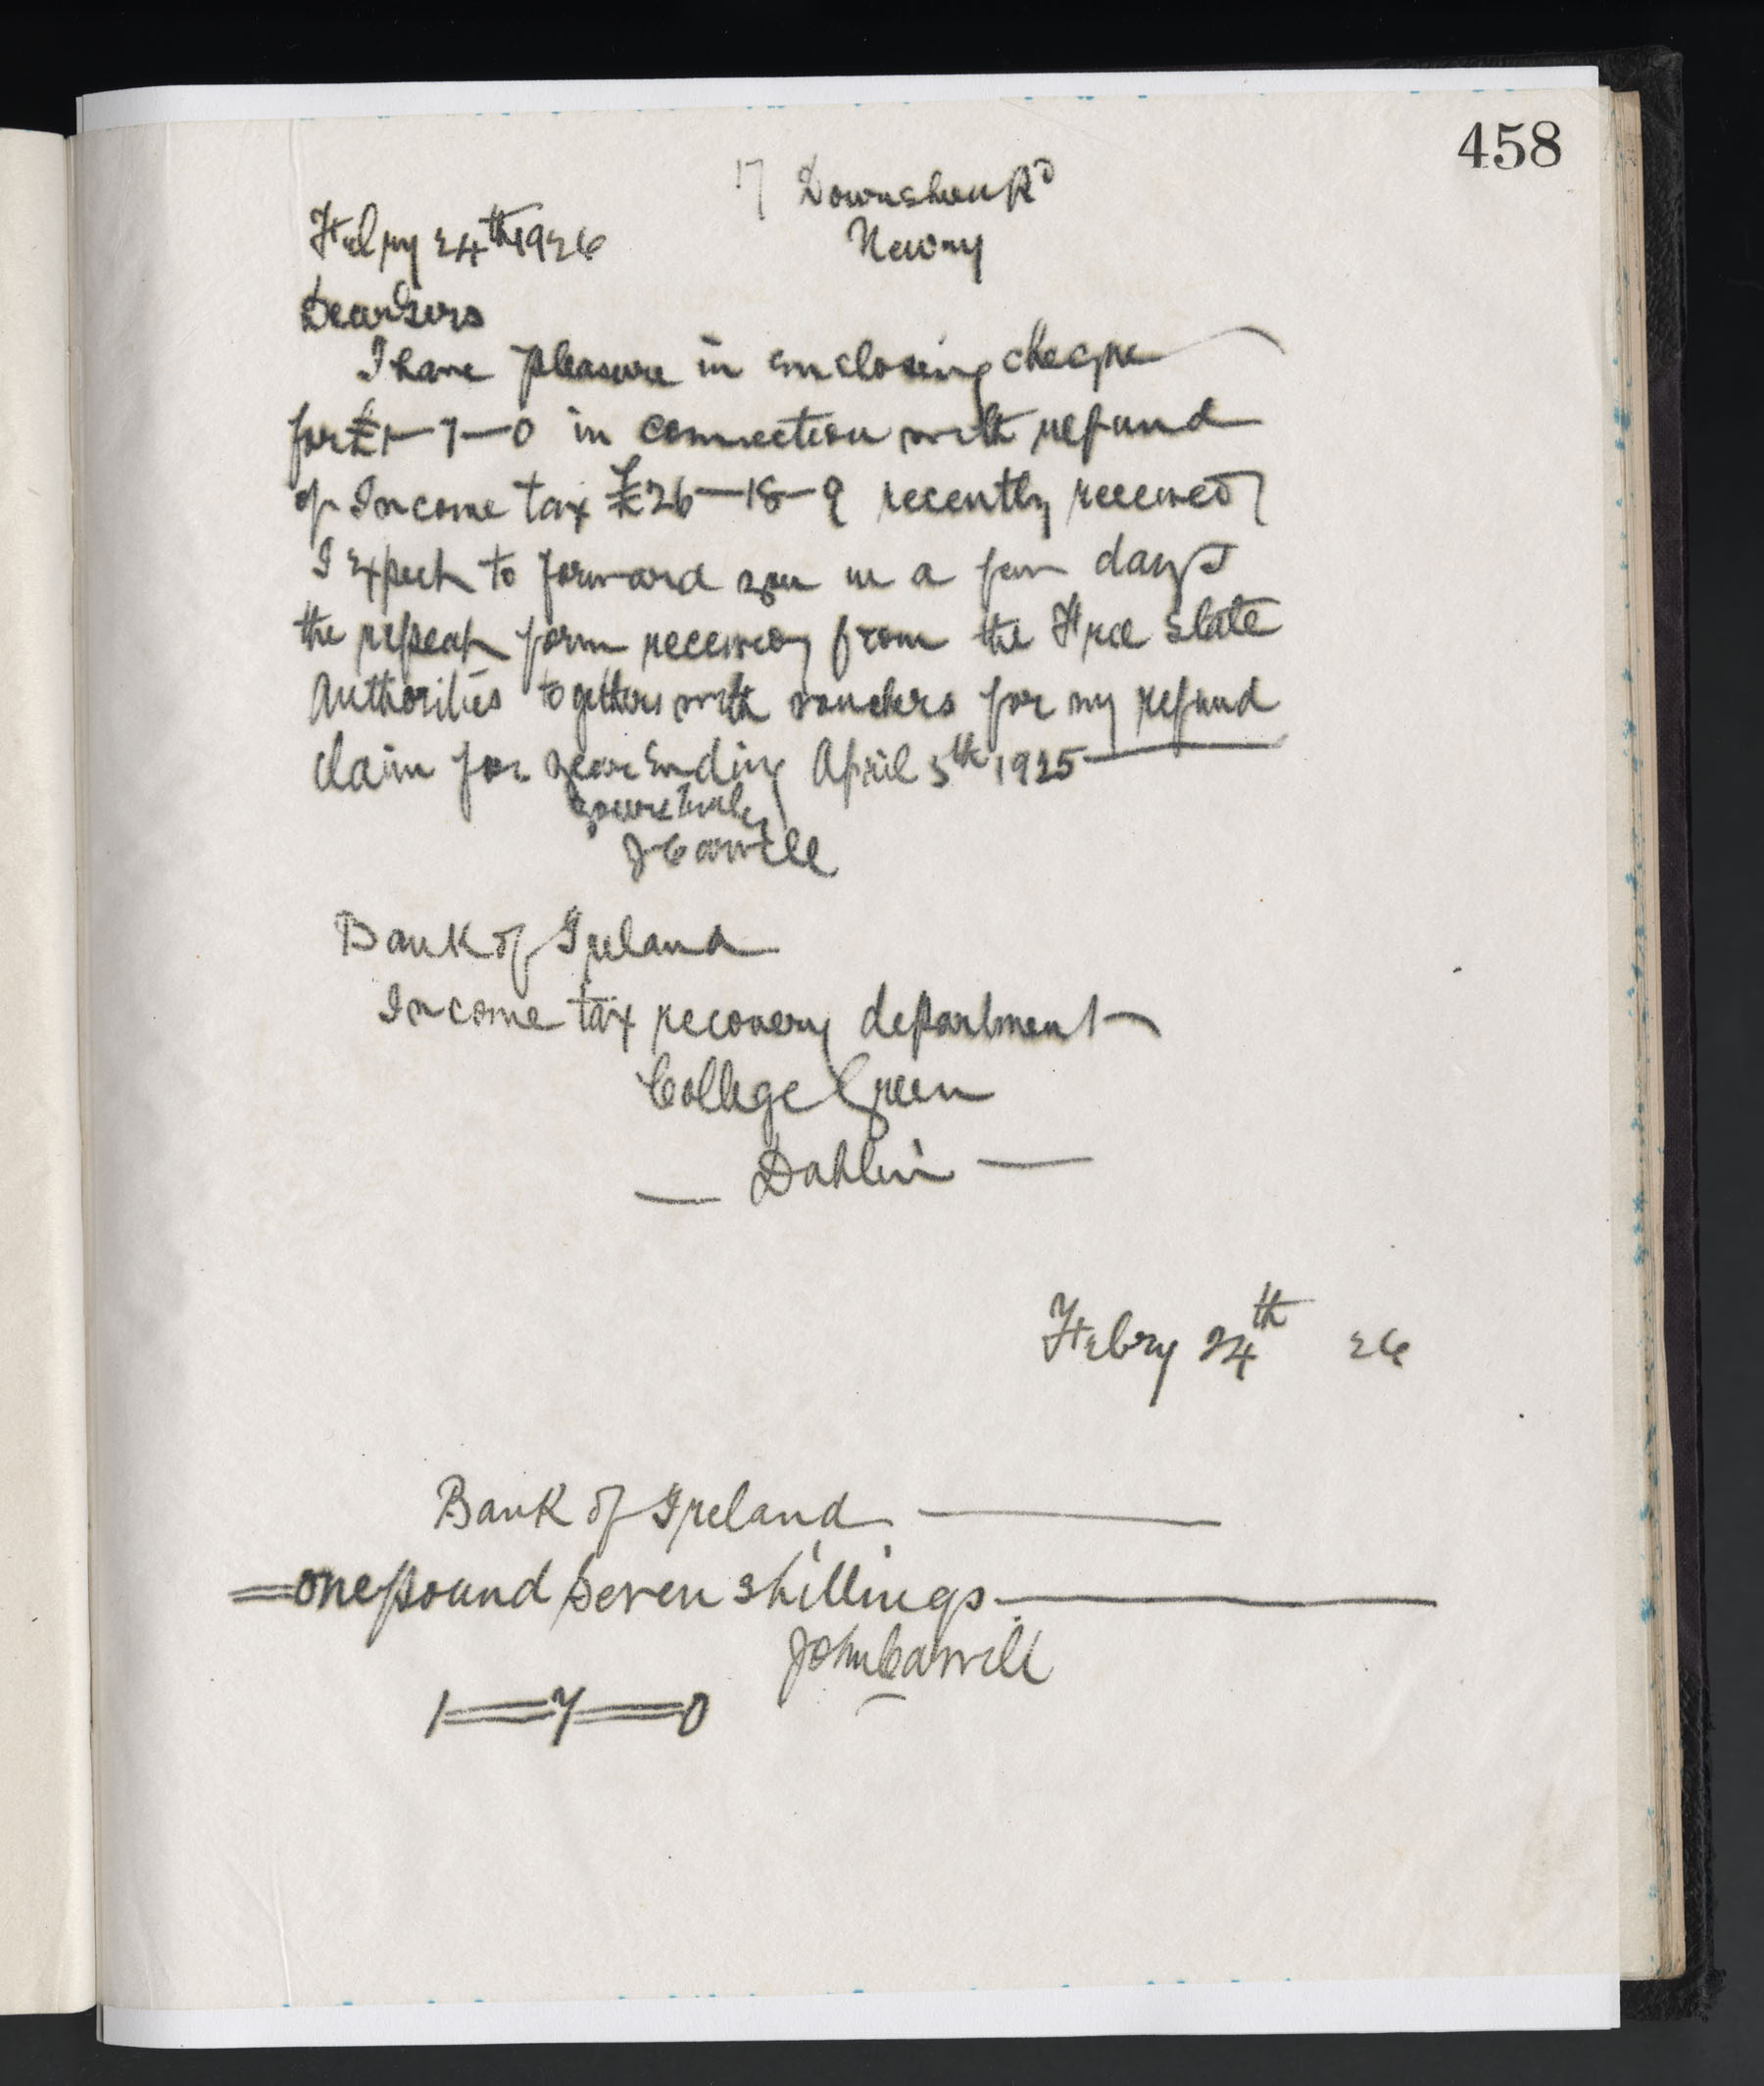 458
17 Downshire Rd
Febry 24th 1926
Newry
Dear Sirs
I have pleasure in enclosing cheque
for £1-7-0 in connection with refund
of Income tax £26-18-9 recently received
I expect to forward you in a few days
the repeat form received from the Free State
Authorities together with vouchers for my refund
claim for year Ending April 5th 1925
yours truly
J Carvill
Bank of Ireland
Income tax recovery department
College Green
— Dublin —
Febry 24th 26
Bank of Ireland —
= one pound seven shillings —
John Carvill
1 = 7 = 0